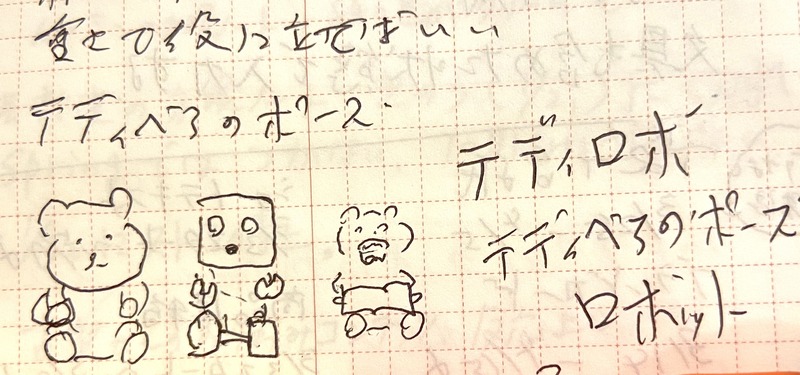 役に立てばいい
テディべろのポーズ
テディロボ
テディべろのポーズ
ロボット